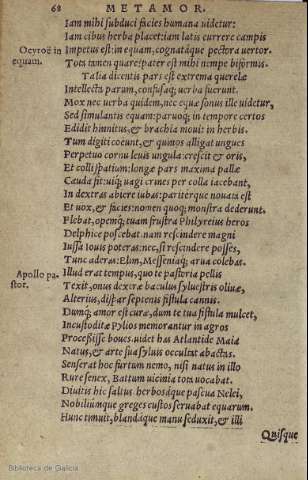 68 METAMOR.
Iam mihi subduci facies humana uidetur:
Iam cibus herba placet: iam latis currere campis
Ocyroë in Impetus est: in equam, cognatáque pectora uertor.
equam. Tota tamen quare? pater est mihi nempe biformis.
Talia dicentis pars est extrema querelæ
Intellecta parum, confusaq; uerba fuerunt.
Mox nec uerba quidem, nec equæ sonus ille uidetur,
Sed simulantis equam: paruoq; in tempore certos
Edidit hinnitus, & brachia mouit in herbis.
Tum digiti coeunt, & quinos alligat ungues
Perpetuo cornu leuis ungula: crescit & oris,
Et colli spatium: longæ pars maxima pallæ
Cauda fit: utq; uagi crines per colla iacebant,
In dextras abiere iubas: pariterque nouata est
Et uox, & facies: nomen quoq; monstra dederunt.
Flebat, opemq; tuam frustra Philyreius heros
Delphice poscebat. nam rescindere magni
Iussa Iouis poteras: nec, si rescindere posses,
Tunc aderas: Elim, Messeniaq; arua colebas.
Apollo pa- Illud erat tempus, quo te pastoria pellis
stor. Texit, onus dexteræ baculus syluestris oliuæ,
Alterius, dispar septenis fistula cannis.
Dumq; amor est curæ, dum te tua fistula mulcet,
Incustoditæ Pylios memorantur in agros
Processisse boues. uidet has Atlantide Maia
Natus, & arte sua syluis occultat abactas.
Senserat hoc furtum nemo, nisi natus in illo
Rure senex, Battum uicinia tota uocabat.
Diuitis hic saltus herbosáque pascua Nelei,
Nobiliúmque greges custos seruabat equarum.
Hunc timuit, blandáque manu seduxit, & illi
Quisque
Biblioteca de Galicia